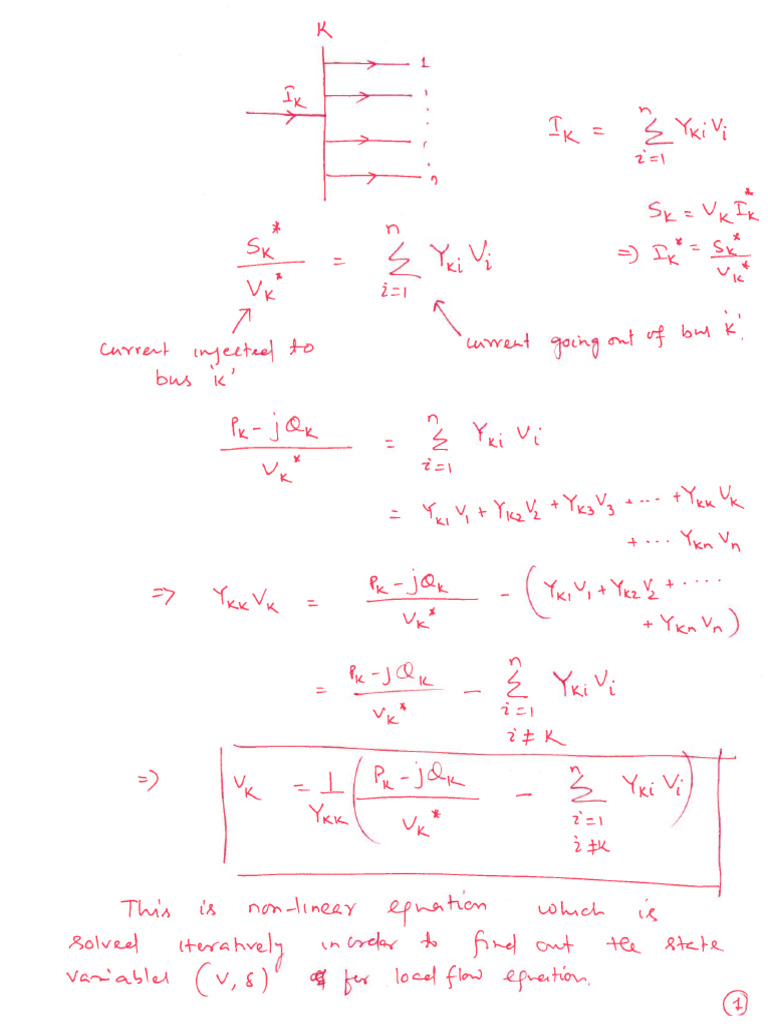 K
1
I_K
n
I_K = \sum_{i=1}^{n} Y_{Ki} V_i
S_K = V_K I_K^*
\frac{S_K^*}{V_K^*} = \sum_{i=1}^{n} Y_{Ki} V_i
=> I_K^* = \frac{S_K^*}{V_K^*}
current injected to
bus 'K'
current going out of bus 'K'.
\frac{P_K - jQ_K}{V_K^*} = \sum_{i=1}^{n} Y_{Ki} V_i
= Y_{K1} V_1 + Y_{K2} V_2 + Y_{K3} V_3 + ... + Y_{KK} V_K
+ ... Y_{Kn} V_n
=> Y_{KK} V_K = \frac{P_K - jQ_K}{V_K^*} - (Y_{K1} V_1 + Y_{K2} V_2 + ....
+ Y_{Kn} V_n)
= \frac{P_K - jQ_K}{V_K^*} - \sum_{i=1, i≠K}^{n} Y_{Ki} V_i
=> V_K = \frac{1}{Y_{KK}} ( \frac{P_K - jQ_K}{V_K^*} - \sum_{i=1, i≠K}^{n} Y_{Ki} V_i )
This is non-linear equation which is
solved iteratively in order to find out the state
variables (V, δ) for load flow equation.
1